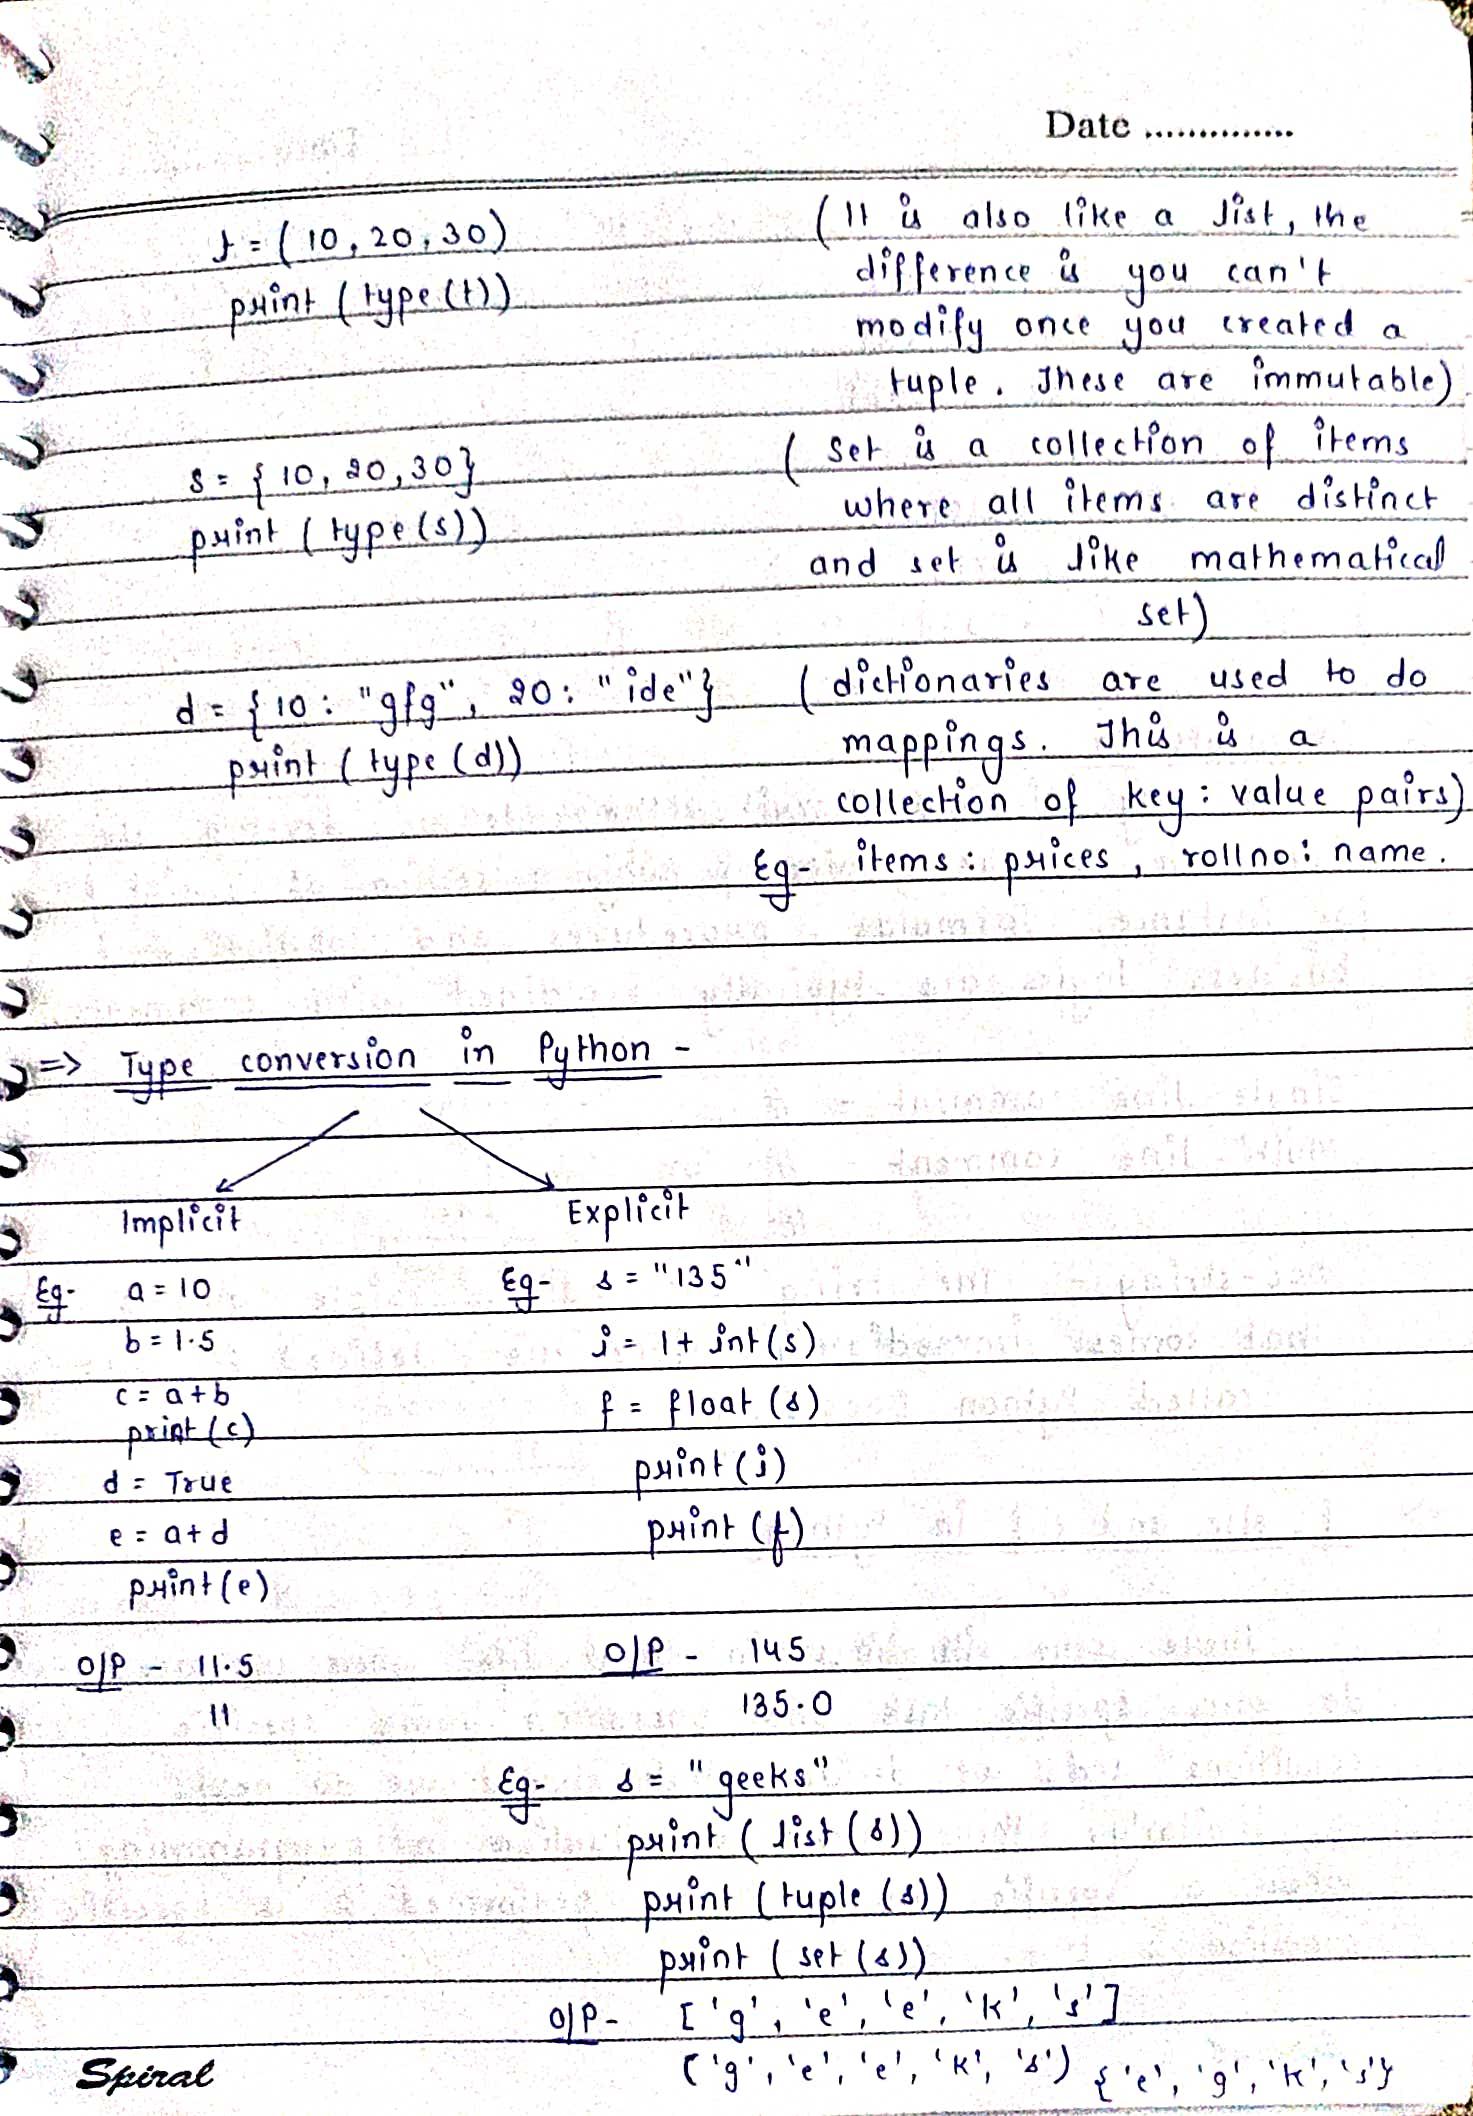 Date ..............
t = ( 10, 20, 30)
print ( type (t))
( It is also like a list, the
difference is you can't
modify once you created a
tuple. These are immutable)
s = { 10, 20, 30}
print ( type (s))
( Set is a collection of items
where all items are distinct
and set is like mathematical
set)
d = { 10 : "gfg", 20 : "ide"}
print ( type (d))
( dictionaries are used to do
mappings. This is a
collection of key : value pairs)
Eg- items : prices , rollno : name.
=> Type conversion in Python -
Implicit
Eg- a = 10
b = 1.5
c = a + b
print (c)
d = True
e = a + d
print (e)
O/P - 11.5
11
Explicit
Eg- s = "135"
i = 1 + int (s)
f = float (s)
print (i)
print (f)
O/P - 145
135.0
Eg- s = "geeks"
print ( list (s))
print ( tuple (s))
print ( set (s))
O/P - [ 'g', 'e', 'e', 'k', 's' ]
( 'g', 'e', 'e', 'k', 's') { 'e', 'g', 'k', 's'}
Spiral